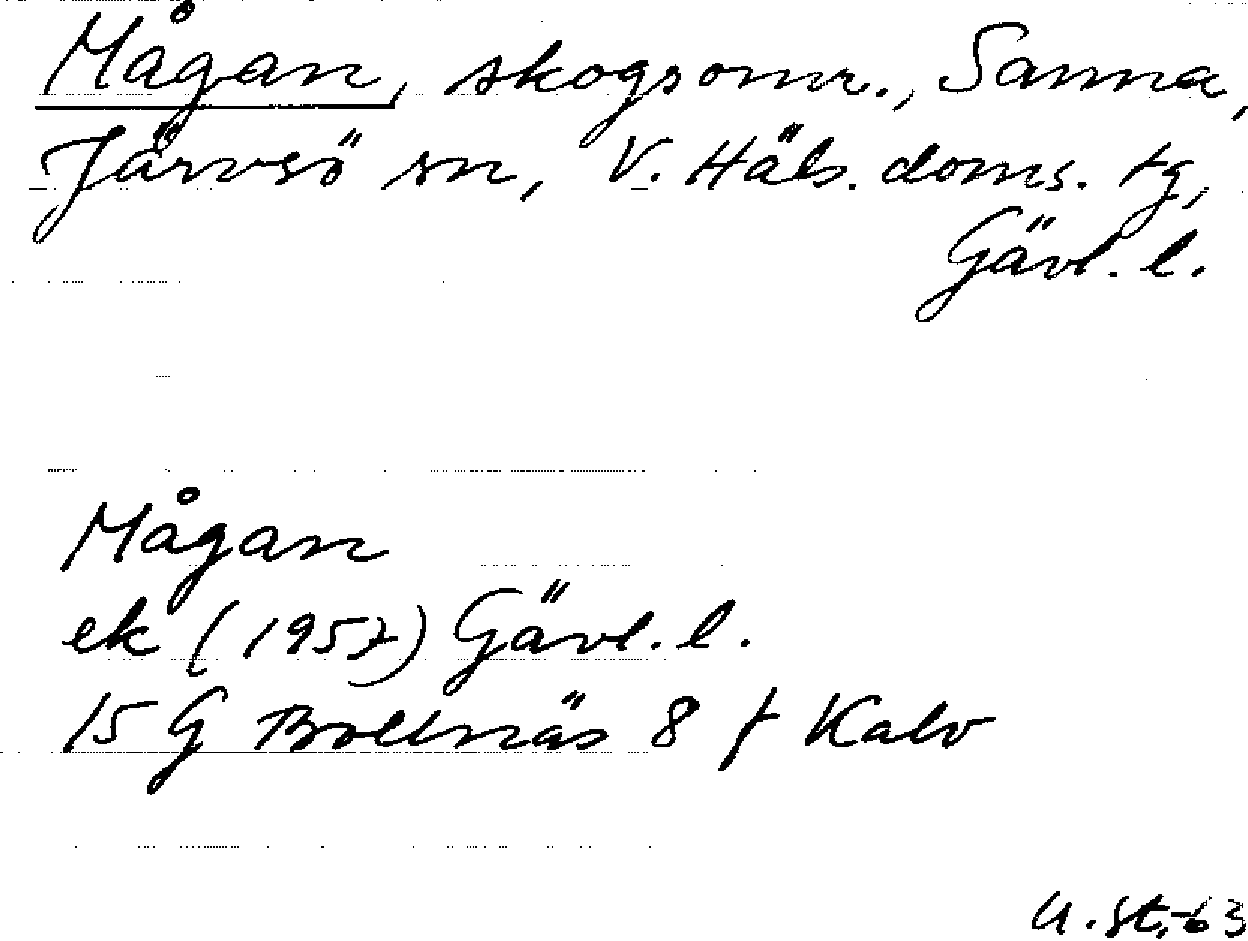 Mågan, skogsomr., Sanna,
Järvsö sn, V. Häls. doms. tg,
Gävl. l.
Mågan
ek (1957) Gävl. l.
15 G Bollnäs 8 f Kalv
U. St. -63